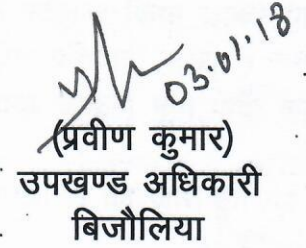 03.01.18
(प्रवीण कुमार)
उपखण्ड अधिकारी
बिजौलिया